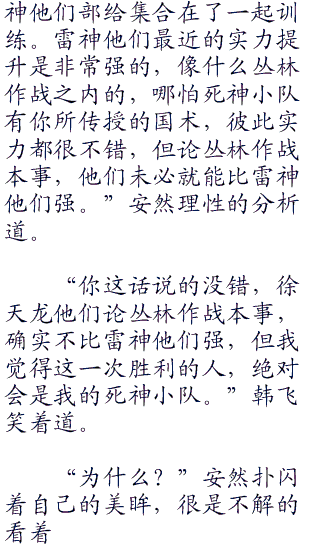 神他们部给集合在了一起训
练。雷神他们最近的实力提
升是非常强的，像什么丛林
作战之内的，哪怕死神小队
有你所传授的国术，彼此实
力都很不错，但论丛林作战
本事，他们未必就能比雷神
他们强。”安然理性的分析
道。
“你这话说的没错，徐
天龙他们论丛林作战本事，
确实不比雷神他们强，但我
觉得这一次胜利的人，绝对
会是我的死神小队。”韩飞
笑着道。
“为什么？”安然扑闪
着自己的美眸，很是不解的
看着